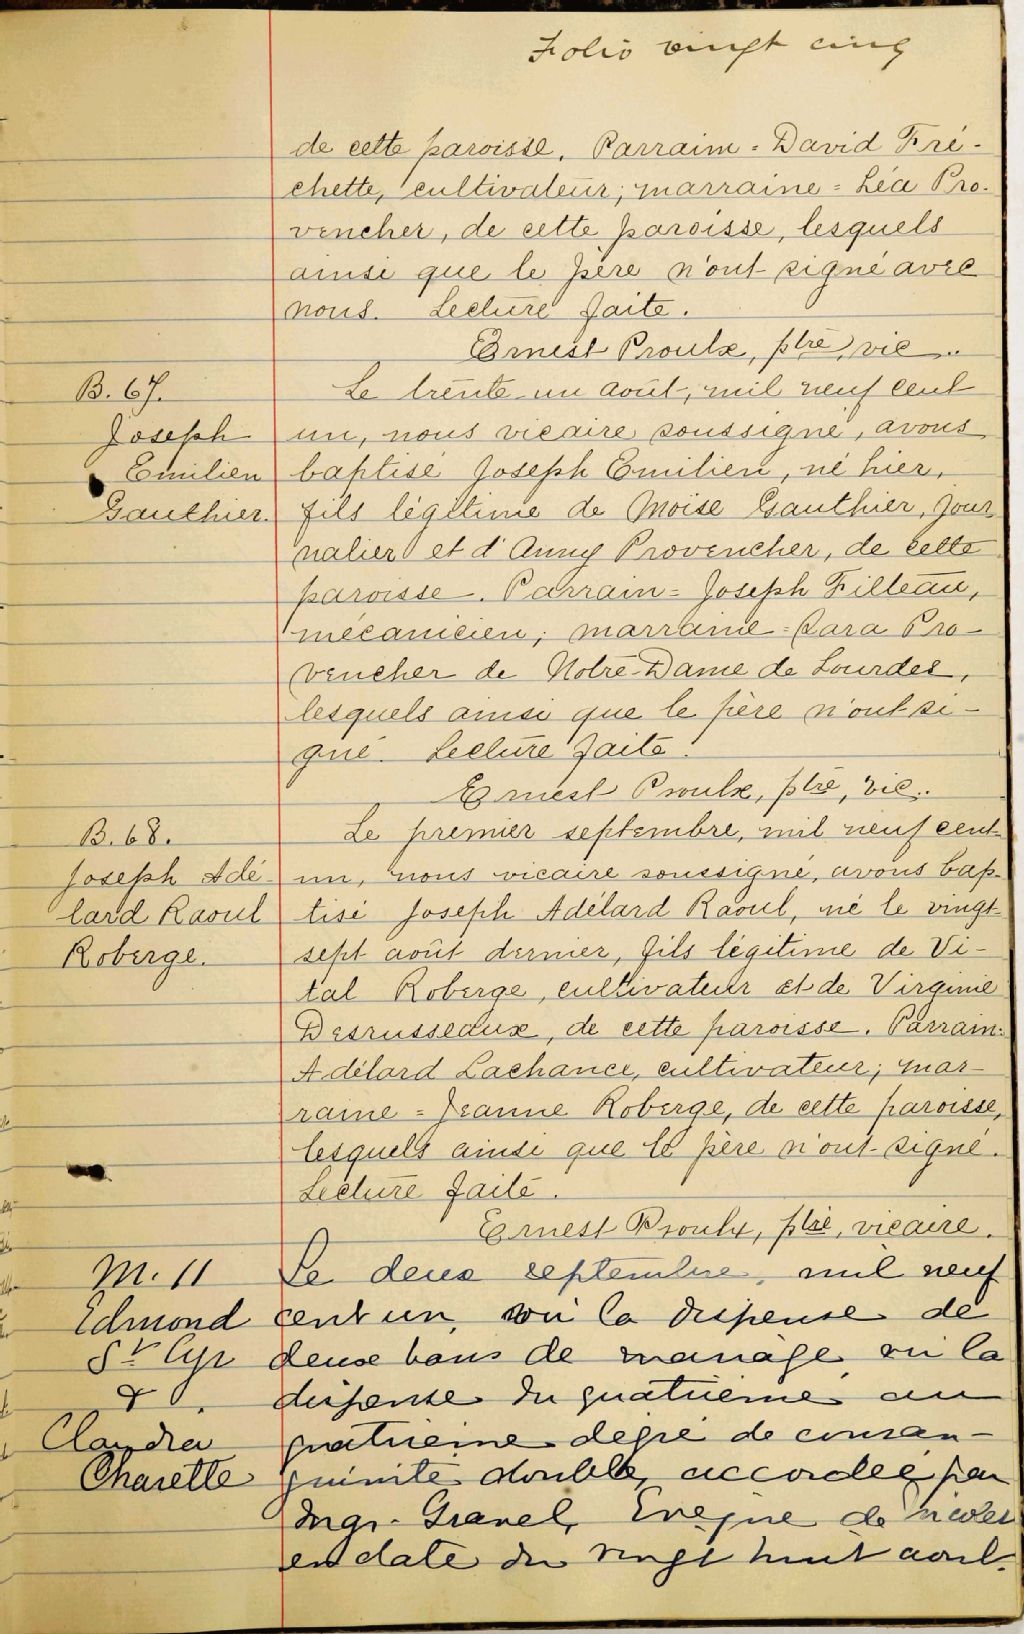 Folio vingt cinq
de cette paroisse. Parrain = David Fré-
chette, cultivateur; marraine = Léa Pro-
vencher, de cette paroisse, lesquels
ainsi que le père n'ont signé avec
nous. Lecture faite.
Ernest Proulx, ptre, vic.
B. 67.
Joseph
Emilien
Gauthier.
Le trente-un août, mil neuf cent
un, nous vicaire soussigné, avons
baptisé Joseph Emilien, né hier,
fils légitime de Moïse Gauthier, jour-
nalier et d'Anny Provencher, de cette
paroisse. Parrain = Joseph Filteau,
mécanicien; marraine = Clara Pro-
vencher de Notre-Dame de Lourdes,
lesquels ainsi que le père n'ont si-
gné. Lecture faite.
Ernest Proulx, ptre, vic.
B. 68.
Joseph Adé-
lard Raoul
Roberge.
Le premier septembre, mil neuf cent-
un, nous vicaire soussigné, avons bap-
tisé Joseph Adélard Raoul, né le vingt-
sept août dernier, fils légitime de Vi-
tal Roberge, cultivateur et de Virginie
Desrusseaux, de cette paroisse. Parrain =
Adélard Lachance, cultivateur; mar-
raine = Jeanne Roberge, de cette paroisse,
lesquels ainsi que le père n'ont signé.
Lecture faite.
Ernest Proulx, ptre, vicaire.
M. 11
Edmond
St Cyr
&
Claudia
Charette
Le deux septembre, mil neuf
cent un, vu la dispense de
deux bans de mariage vu la
dispense du quatrieme au
quatrieme degré de consan-
guinité double, accordée par
Mgr. Gravel, Evêque de Nicolet
en date du vingt huit aout.